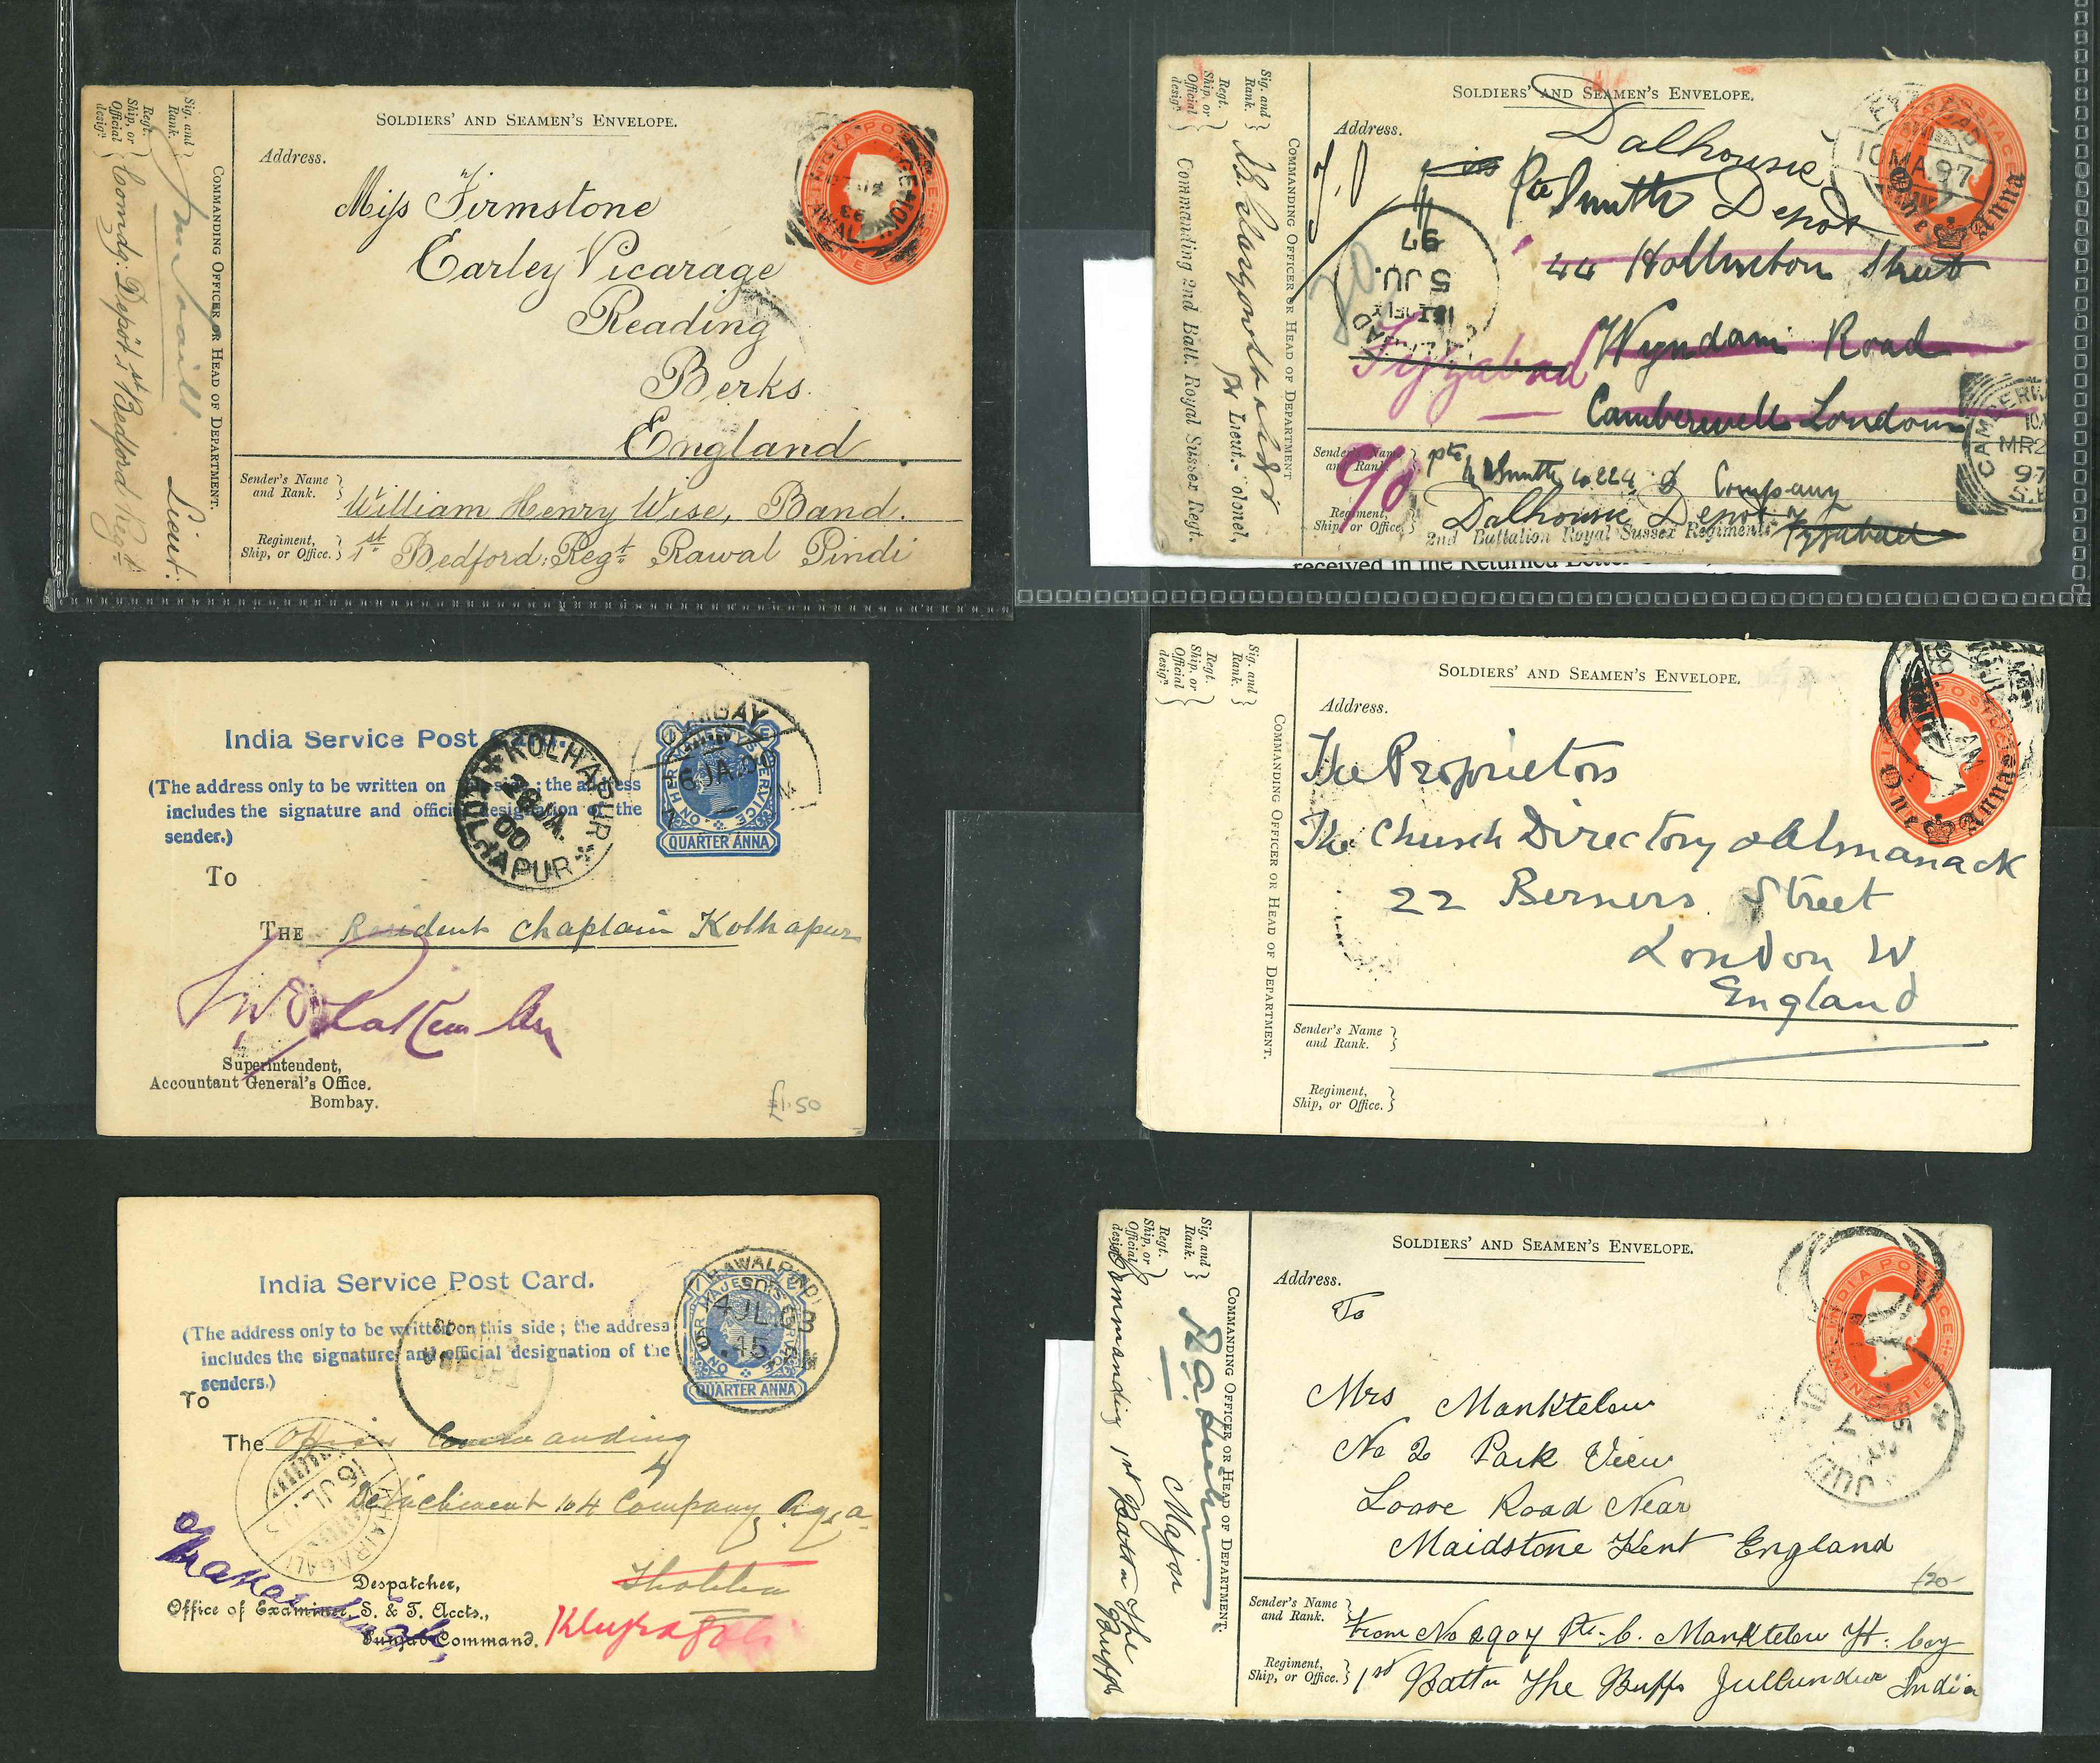 SOLDIERS' AND SEAMEN'S ENVELOPE.
Address.
Miss Firmstone
Earley Vicarage
Reading
Berks.
England
Sender's Name
and Rank.
William Henry Wise, Band.
Regiment,
Ship, or Office.
1st Bedford: Regt. Rawal Pindi
COMMANDING OFFICER OR HEAD OF DEPARTMENT.
Sig. and
Rank.
Lieut.
Regt.
Ship, or
Official
design.
Comdg. Depôt 1st Bedford Regt.
SOLDIERS' AND SEAMEN'S ENVELOPE.
Address.
Dalhousie
Pte Smith Depot
44 Street
Wyndam Road
Camberwell London
Fyzabad
5 JU.
97
10 MA. 97
One Anna
CAMBERW
MR 2
97
S.E
Sender's Name
and Rank.
Pte Smith D Company
Regiment,
Ship, or Office.
Dalhousie Depot Fyzabad
2nd Battalion Royal Sussex Regiment
c/o
COMMANDING OFFICER OR HEAD OF DEPARTMENT
Sig. and
Rank.
Lieut.- olonel,
Regt.
Ship, or
Official
design.
Commanding 2nd Batt. Royal Sussex Regt.
received in the Returned Letter
India Service Post
(The address only to be written on side; the address
includes the signature and official designation of the
sender.)
To
THE Resident Chaplain Kolhapur
Superintendent,
Accountant General's Office.
Bombay.
£1.50
KOLHAPUR
26 JA.
00
ON HER MAJESTY'S SERVICE
QUARTER ANNA
SOLDIERS' AND SEAMEN'S ENVELOPE.
Address.
The Proprietors
The Church Directory & Almanack
22 Berners Street
London W
England
One Anna
Sender's Name
and Rank.
Regiment,
Ship, or Office.
COMMANDING OFFICER OR HEAD OF DEPARTMENT.
Sig. and
Rank.
Regt.
Ship, or
Official
design.
India Service Post Card.
(The address only to be written on this side; the address
includes the signature and official designation of the
senders.)
To
The Officer Commanding
Detachment 104 Company R.G.A.
Despatcher,
Office of Examiner, S. & T. Accts.,
Punjab Command.
RAWALPINDI
4 JL. 03
.45
QUARTER ANNA
KHAIRAGALI
SOLDIERS' AND SEAMEN'S ENVELOPE.
Address.
To
Mrs Manktelow
No 2 Park View
Loose Road Near
Maidstone Kent England
£20-
Sender's Name
and Rank.
From No 2907 Pte. C. Manktelow H: Coy
Regiment,
Ship, or Office.
1st Battn The Buffs Jullundur India
COMMANDING OFFICER OR HEAD OF DEPARTMENT.
Sig. and
Rank.
Major
Regt.
Ship, or
Official
design.
Commanding 1st Battn The Buffs